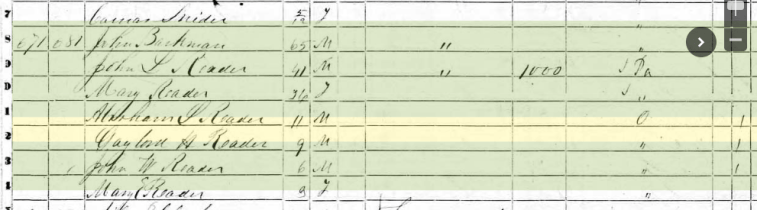 7 5/12 F
8 671 681 John Barkman 65 M "
9 John L Reader 41 M " 1000 Pa
0 Mary Reader 36 F "
1 Abraham L Reader 11 M O 1
2 Gaylord H Reader 9 M " 1
3 John W Reader 6 M " 1
4 Mary E Reader 3 F "